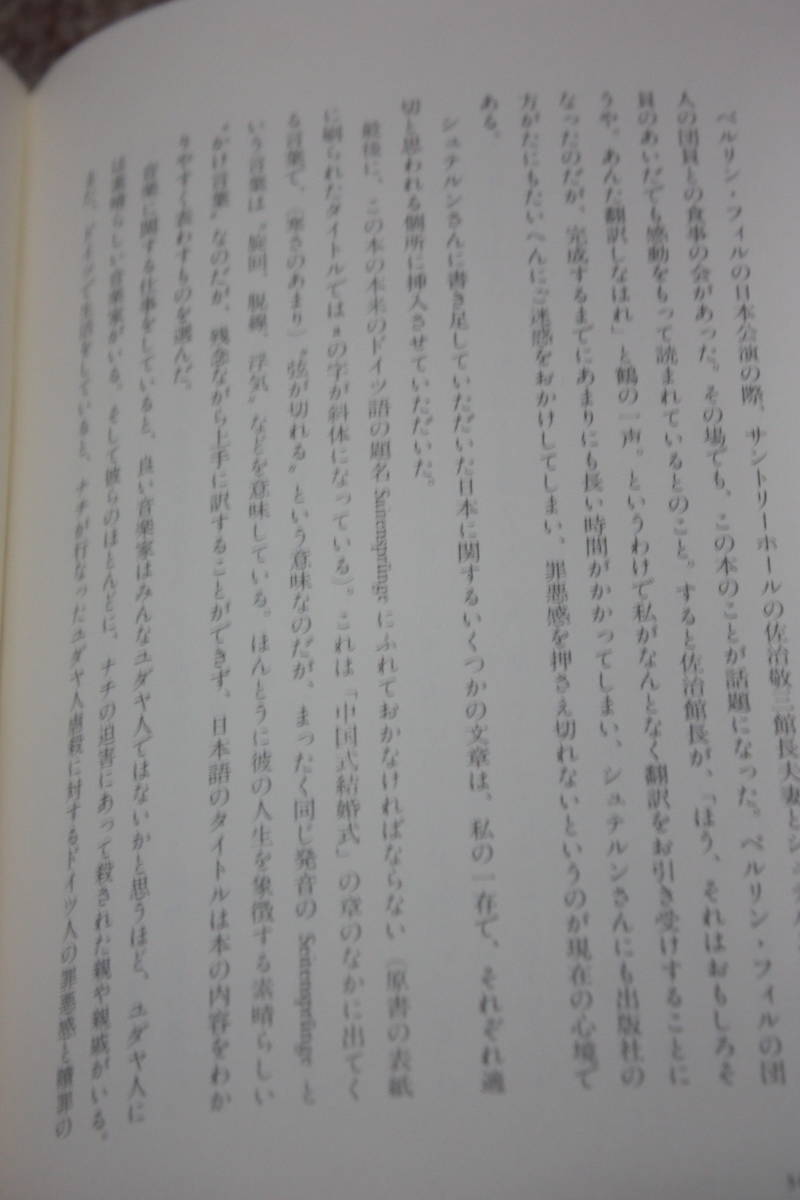 ベルリン・フィルの日本公演の際、サントリーホールの佐治敬三館長夫妻とシュテルン
人の団員との食事の会があった。その場でも、この本のことが話題になった。ベルリン・フィルの団
員のあいだでも感動をもって読まれているとのこと。すると佐治館長が、「ほう、それはおもしろそ
うや。あんた翻訳しなはれ」と鶴の一声。というわけで私がなんとなく翻訳をお引き受けすることに
なったのだが、完成するまでにあまりにも長い時間がかかってしまい、シュテルンさんにも出版社の
方がたにもたいへんにご迷惑をおかけしてしまい、罪悪感を押さえ切れないというのが現在の心境で
ある。
シュテルンさんに書き足していただいた日本に関するいくつかの文章は、私の一存で、それぞれ適
切と思われる個所に挿入させていただいた。
最後に、この本の本来のドイツ語の題名 Saitensprünge にふれておかなければならない（原書の表紙
に刷られたタイトルでは a の字が斜体になっている）。これは「中国式結婚式」の章のなかに出てく
る言葉で、（寒さのあまり）〝弦が切れる〟という意味なのだが、まったく同じ発音の Seitensprünge と
いう言葉は〝旋回、脱線、浮気〟などを意味している。ほんとうに彼の人生を象徴する素晴らしい
〝かけ言葉〟なのだが、残念ながら上手に訳することができず、日本語のタイトルは本の内容をわか
りやすく表わすものを選んだ。
音楽に関する仕事をしていると、良い音楽家はみんなユダヤ人ではないかと思うほど、ユダヤ人に
は素晴らしい音楽家がいる。そして彼らのほとんどに、ナチの迫害にあって殺された親や親戚がいる。
また、ドイツで生活をしていると、ナチが行なったユダヤ人虐殺に対するドイツ人の罪悪感と贖罪の